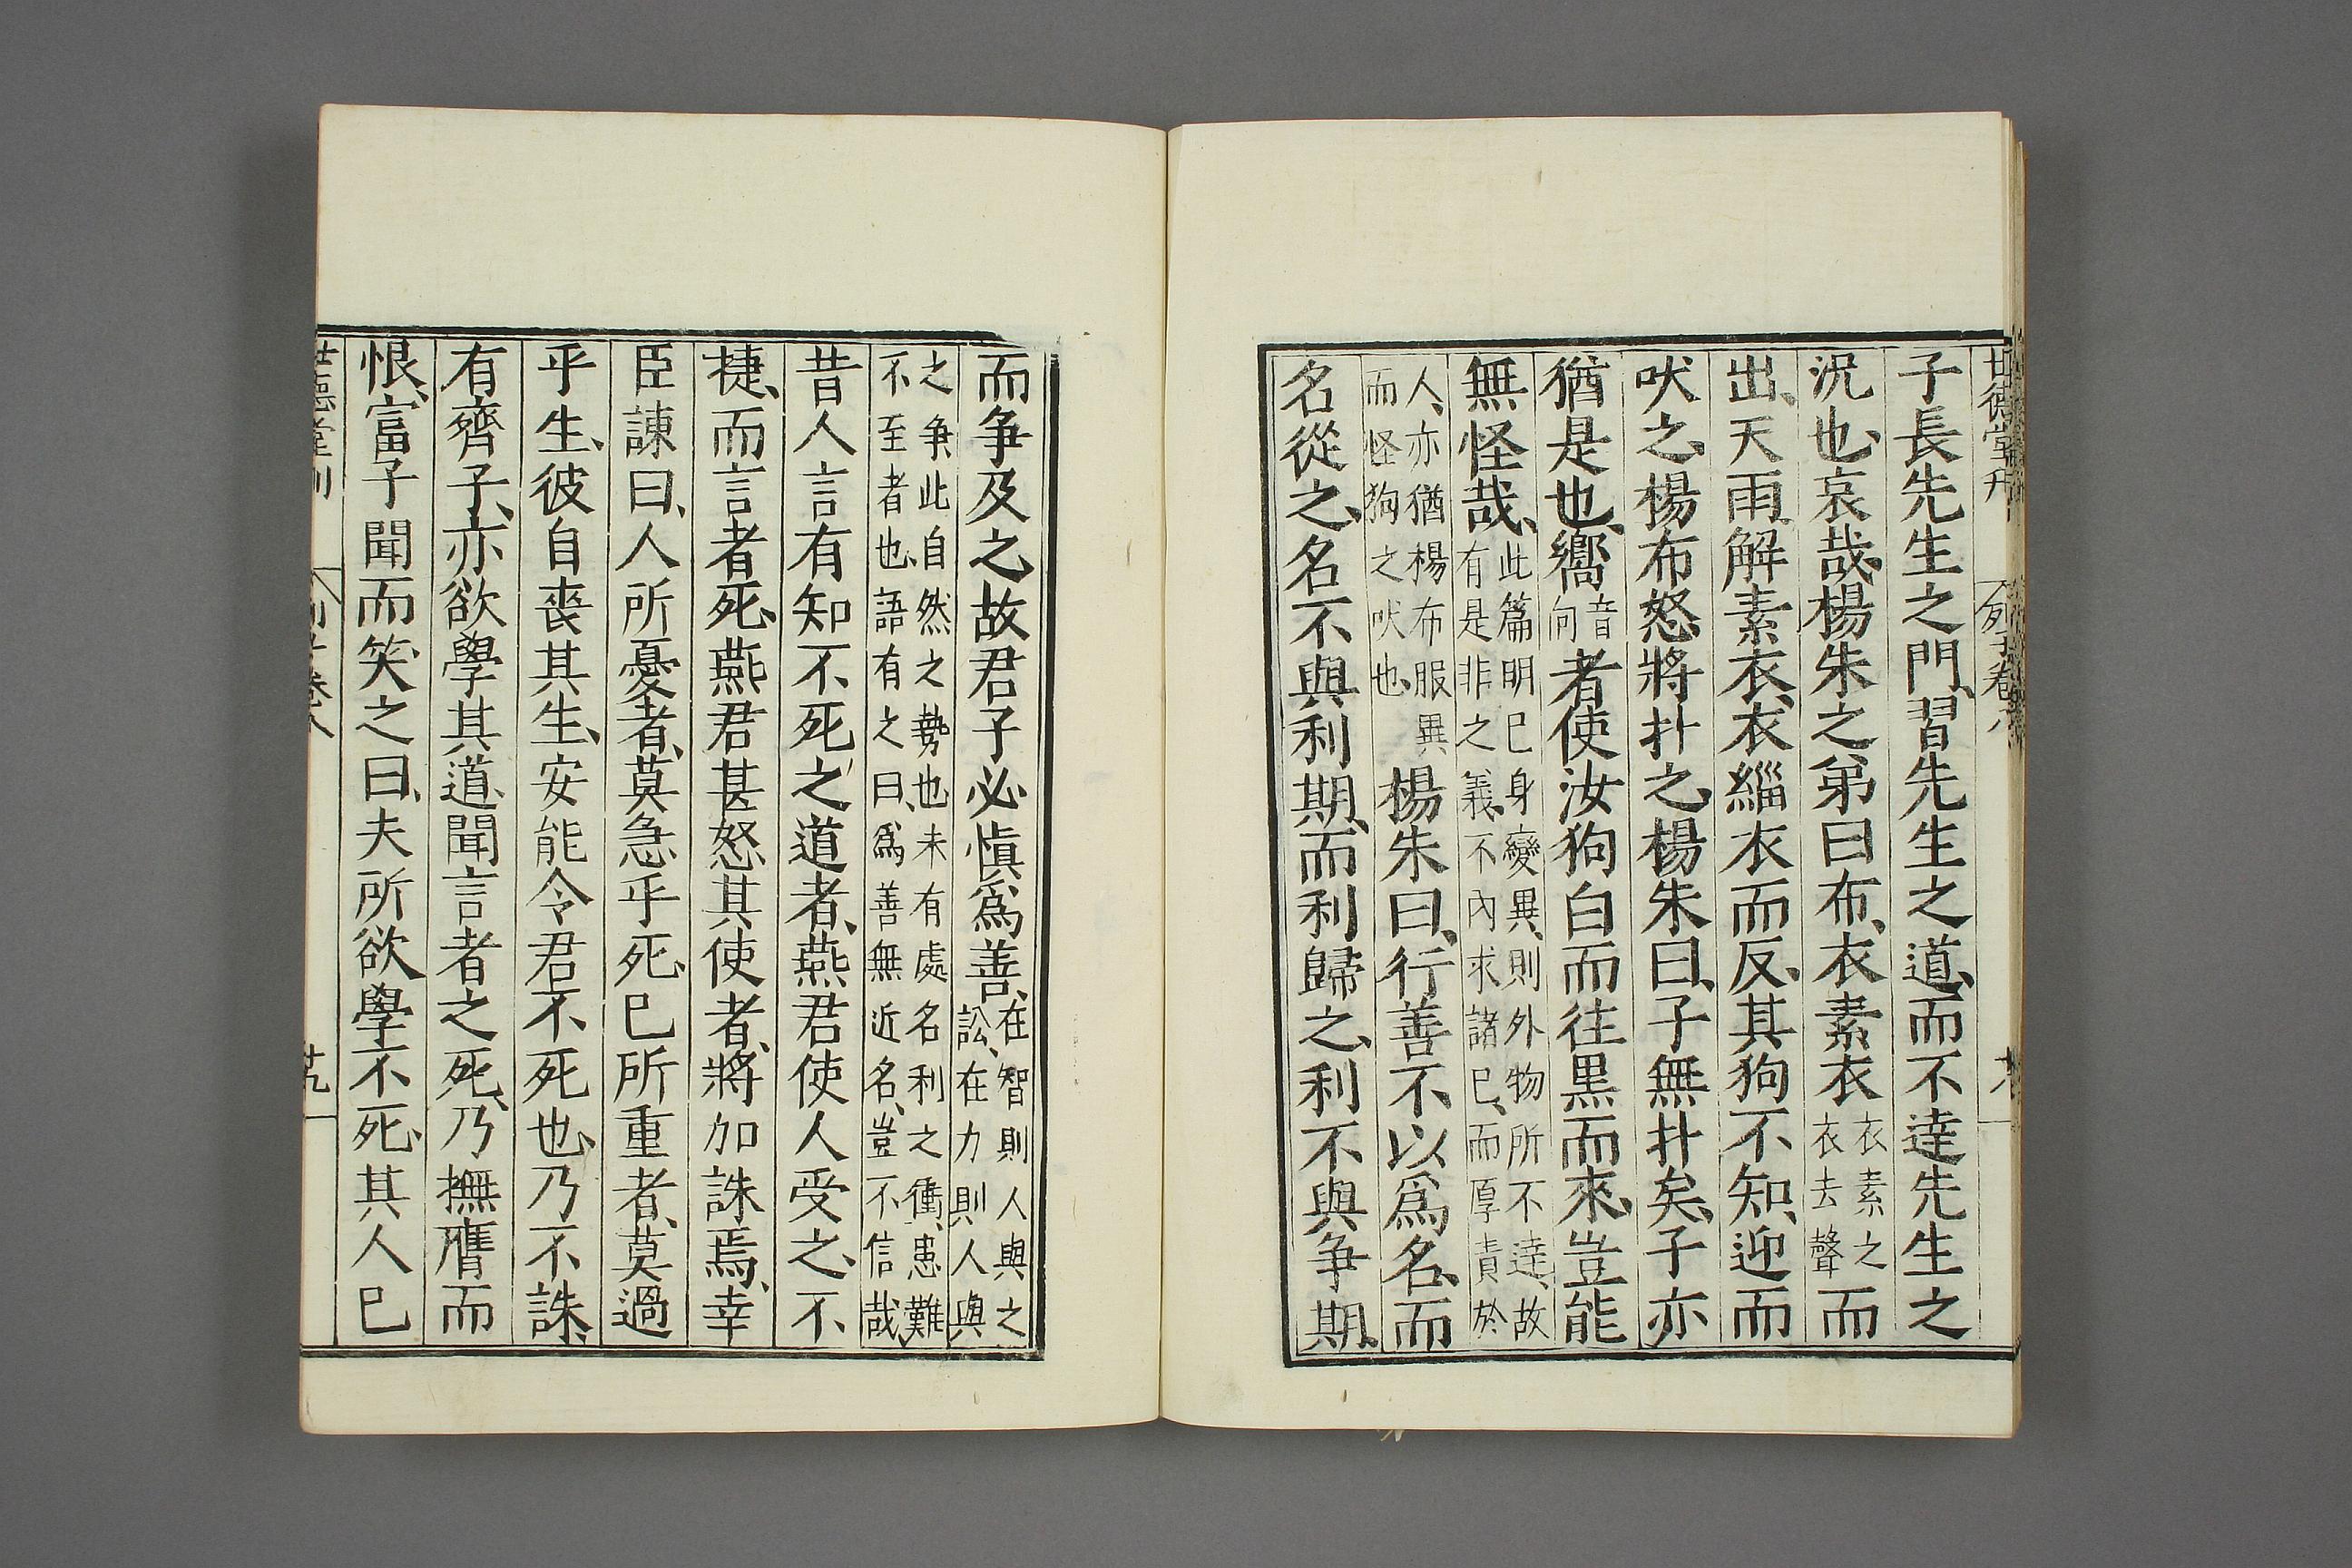 世德堂刊
列子卷八
子長先生之門、習先生之道、而不達先生之
況也、哀哉、楊朱之弟曰布、衣素衣衣素之衣去聲而
出、天雨、解素衣、衣緇衣而反、其狗不知、迎而
吠之、楊布怒將扑之、楊朱曰、子無扑矣、子亦
猶是也、嚮音向者使汝狗白而往黒而來、豈能
無怪哉、此篇明已身變異、則外物所不達、故有是非之義、不內求諸已、而厚責於
人、亦猶楊布服異而怪狗之吠也、楊朱曰、行善不以爲名、而
名從之、名不與利期、而利歸之、利不與爭期、
而爭及之故君子必愼爲善、在智則人與之訟、在力則人與
之爭、此自然之勢也、未有處名利之衝、患難不至者也、語有之曰、爲善無近名、豈不信哉、
昔人言有知不死之道者、燕君使人受之、不
捷、而言者死、燕君甚怒其使者、將加誅焉、幸
臣諫曰、人所憂者、莫急乎死、已所重者、莫過
乎生、彼自喪其生、安能令君不死也、乃不誅、
有齊子、亦欲學其道、聞言者之死、乃撫膺而
恨、富子聞而笑之曰、夫所欲學不死、其人已
世德堂刊
列子卷八
廿九